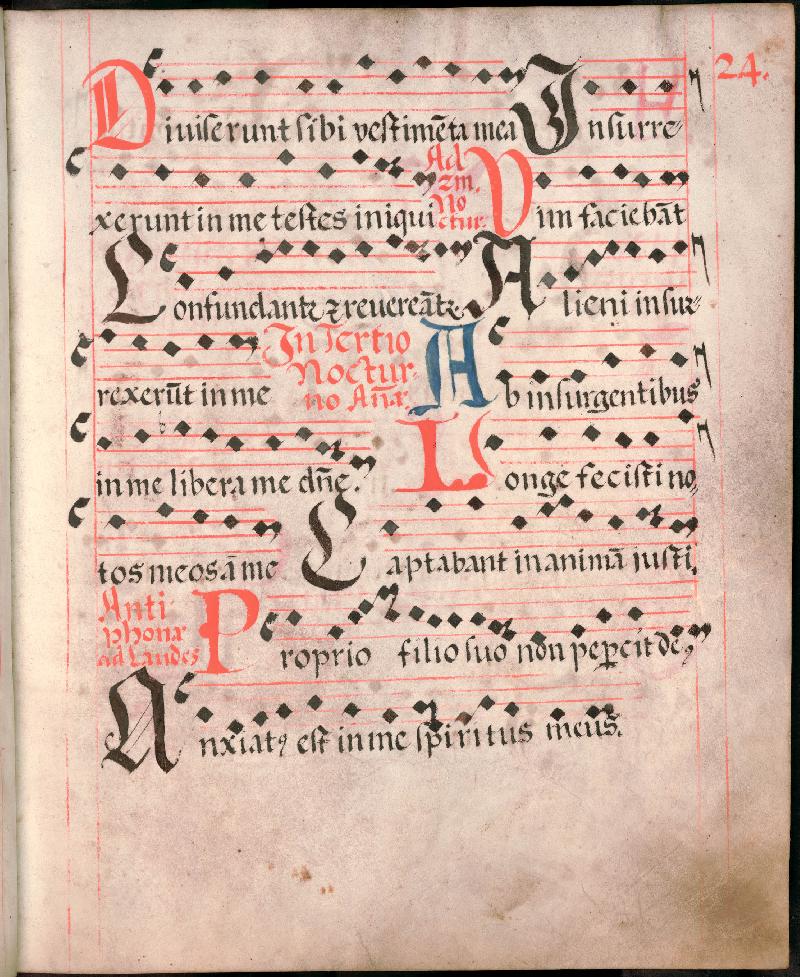 24.
Diuiserunt sibi vestimēta mea Insurre
xerunt in me testes iniqui Ad 2m. No ctur. Vim faciebāt
Confundantr & reuereātr Alieni insur
rexerūt in me In Tertio Noctur no Añæ Ab insurgentibus
in me libera me dñe. Longe fecisti no
tos meos ā me Captabant in animā iusti.
Anti phonæ ad Laudes Proprio filio suo non pepercit de,
Anxiatꝰ est in me spiritus meus.